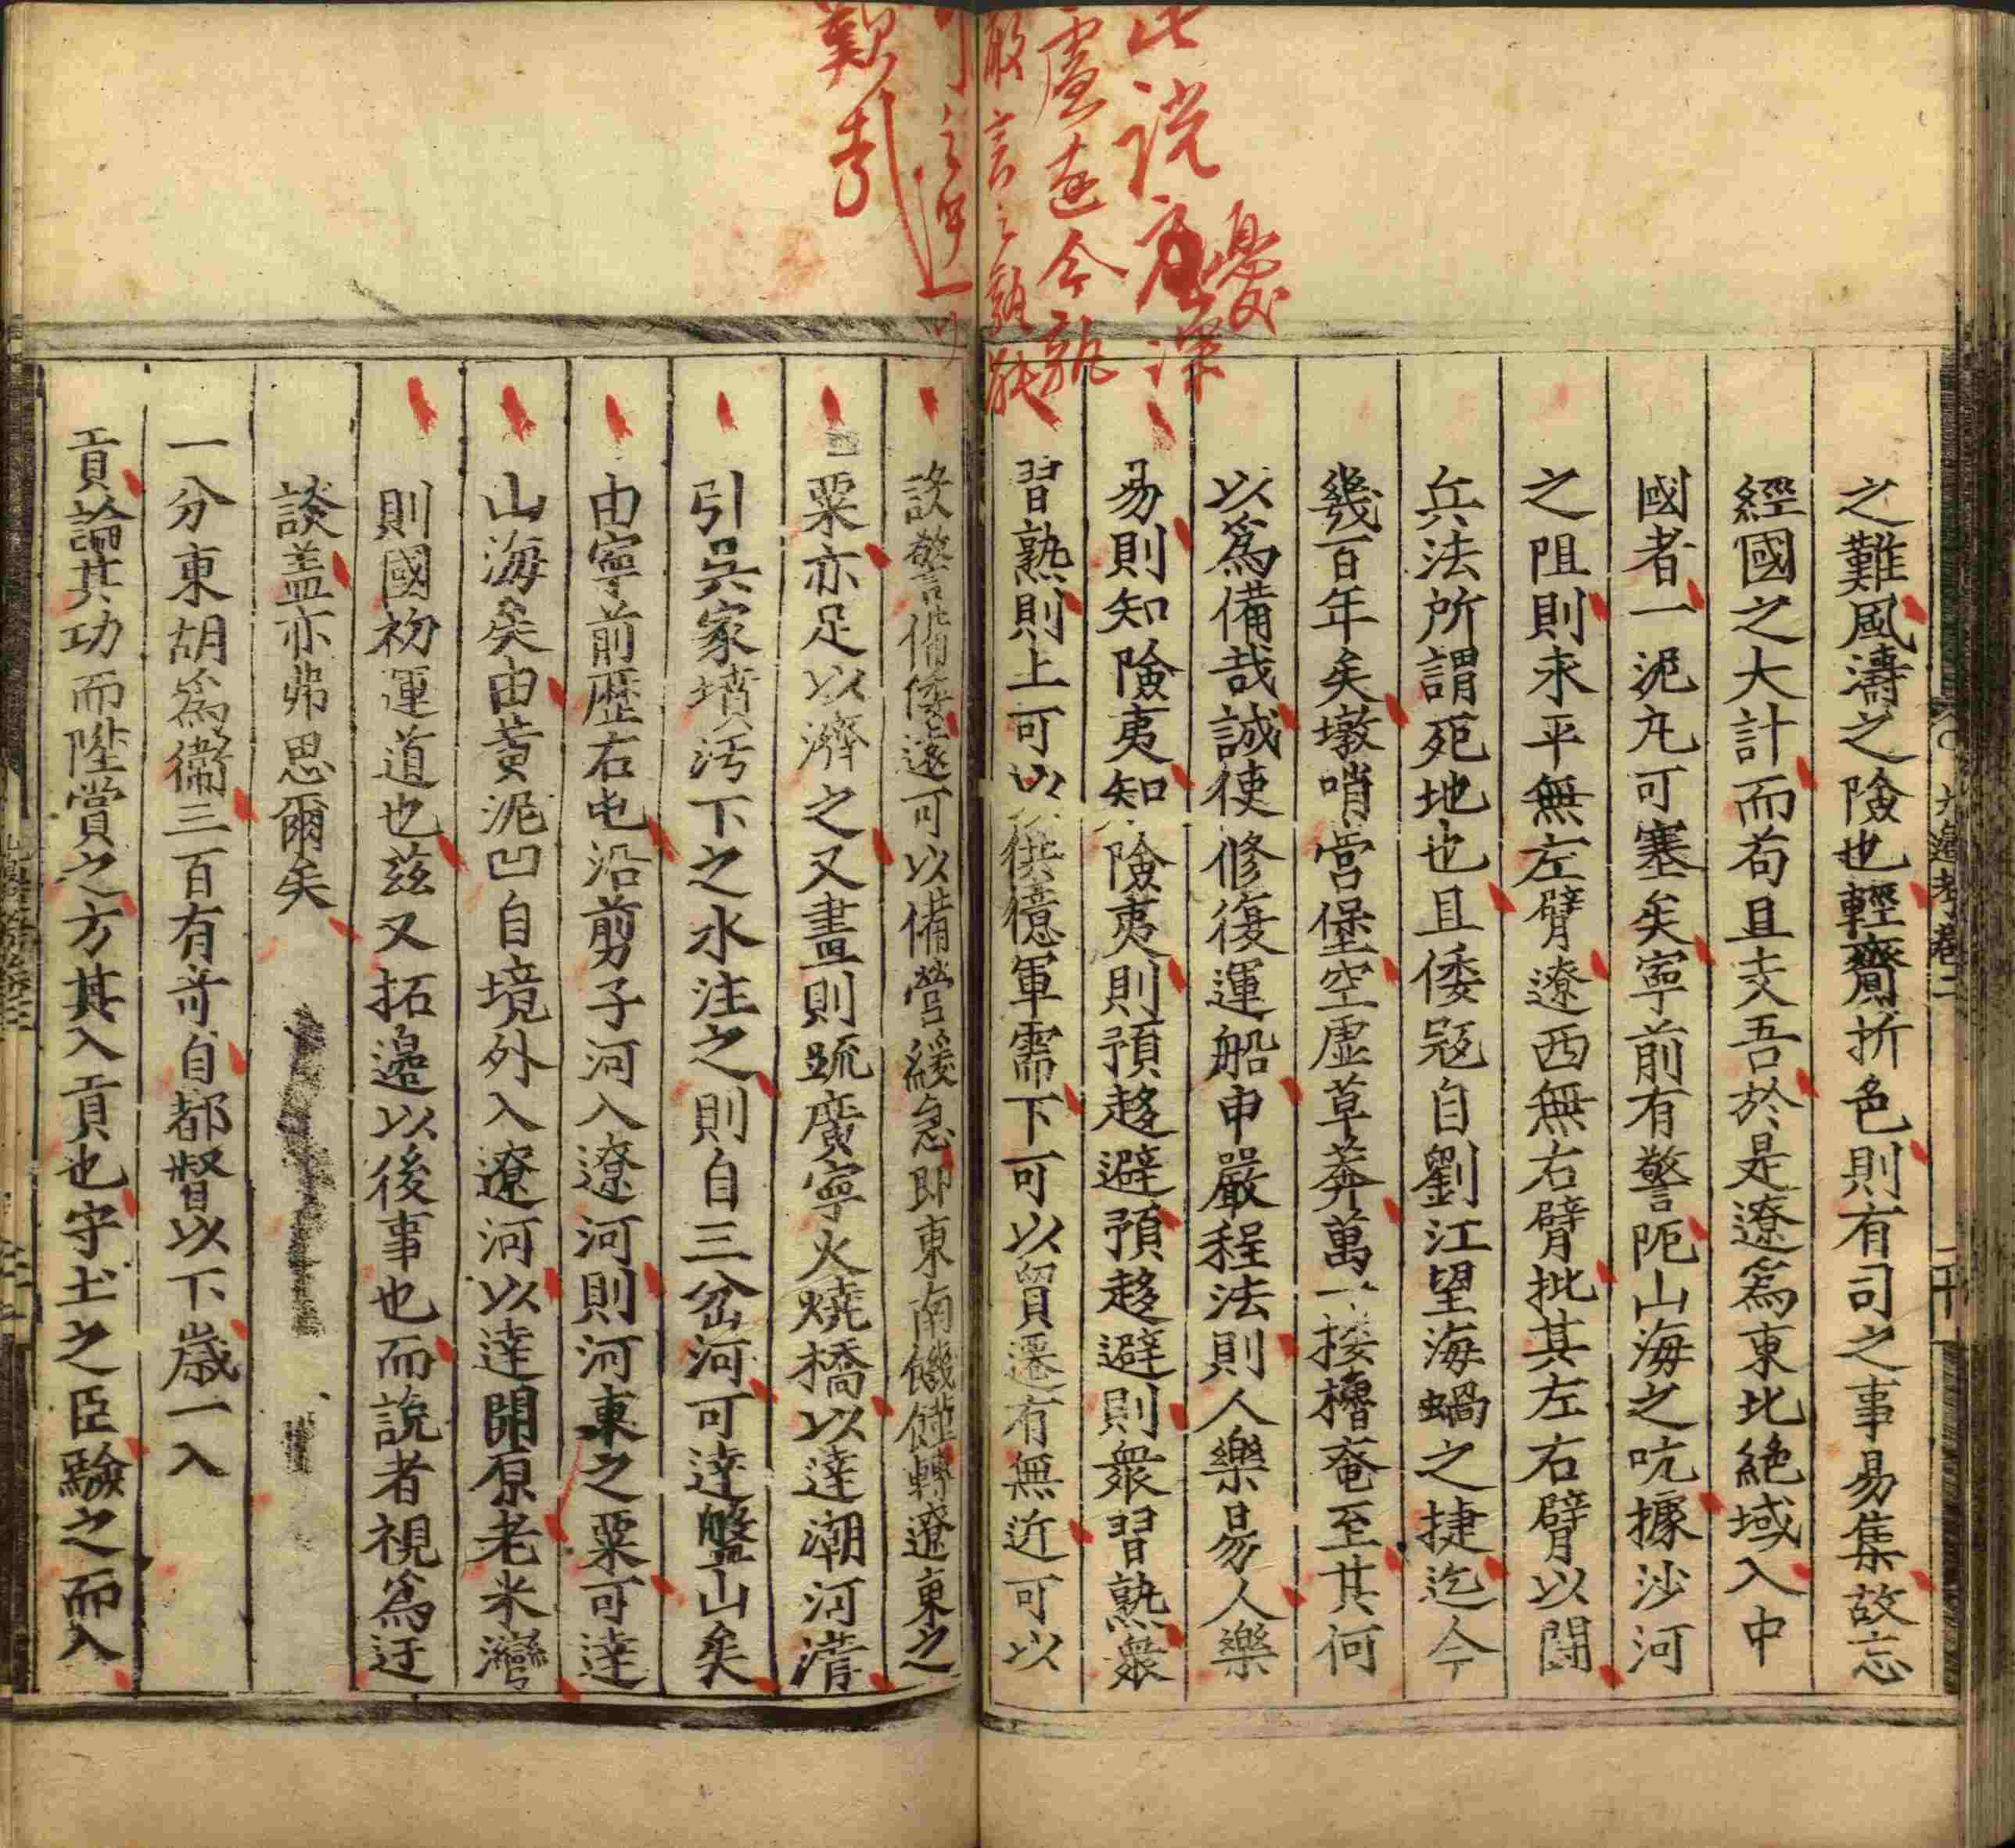 之難風濤之險也輕齎折色則有司之事易集故忘
經國之大計而苟且支吾於是遼爲東北絶域入中
國者一泥丸可塞矣寧前有警阨山海之吭據沙河
之阻則永平無左臂遼西無右臂批其左右臂以鬪
兵法所謂死地也且倭宼自劉江望海蝸之捷迄今
幾百年矣墩哨營堡空虚草莽萬一接櫓奄至其何
以爲備哉誠使修復運船申嚴程法則人樂易人樂
易則知險夷知險夷則預趍避預趍避則衆習熟衆
習熟則上可以供億軍需下可以貿遷有無近可以
設警備倭遠可以備營緩急即東南饑饉轉遼東之
粟亦足以濟之又畫則疏廣寧火燒橋以達潮河溝
引吳家墳汚下之水注之則自三岔河可達盤山矣
由寧前歴右屯沿剪子河入遼河則河東之粟可達
山海矣由黃泥凹自境外入遼河以達開原老米灣
則國初運道也兹又拓邉以後事也而說者視爲迂
談盖亦弗思爾矣
一分東胡爲衛三百有竒自都督以下歲一入
貢論其功而陞賞之方其入貢也守土之臣驗之而入
此說慮深
憂
慮遠今孰
敢言之孰能
艱哉
九邉考卷二
二十